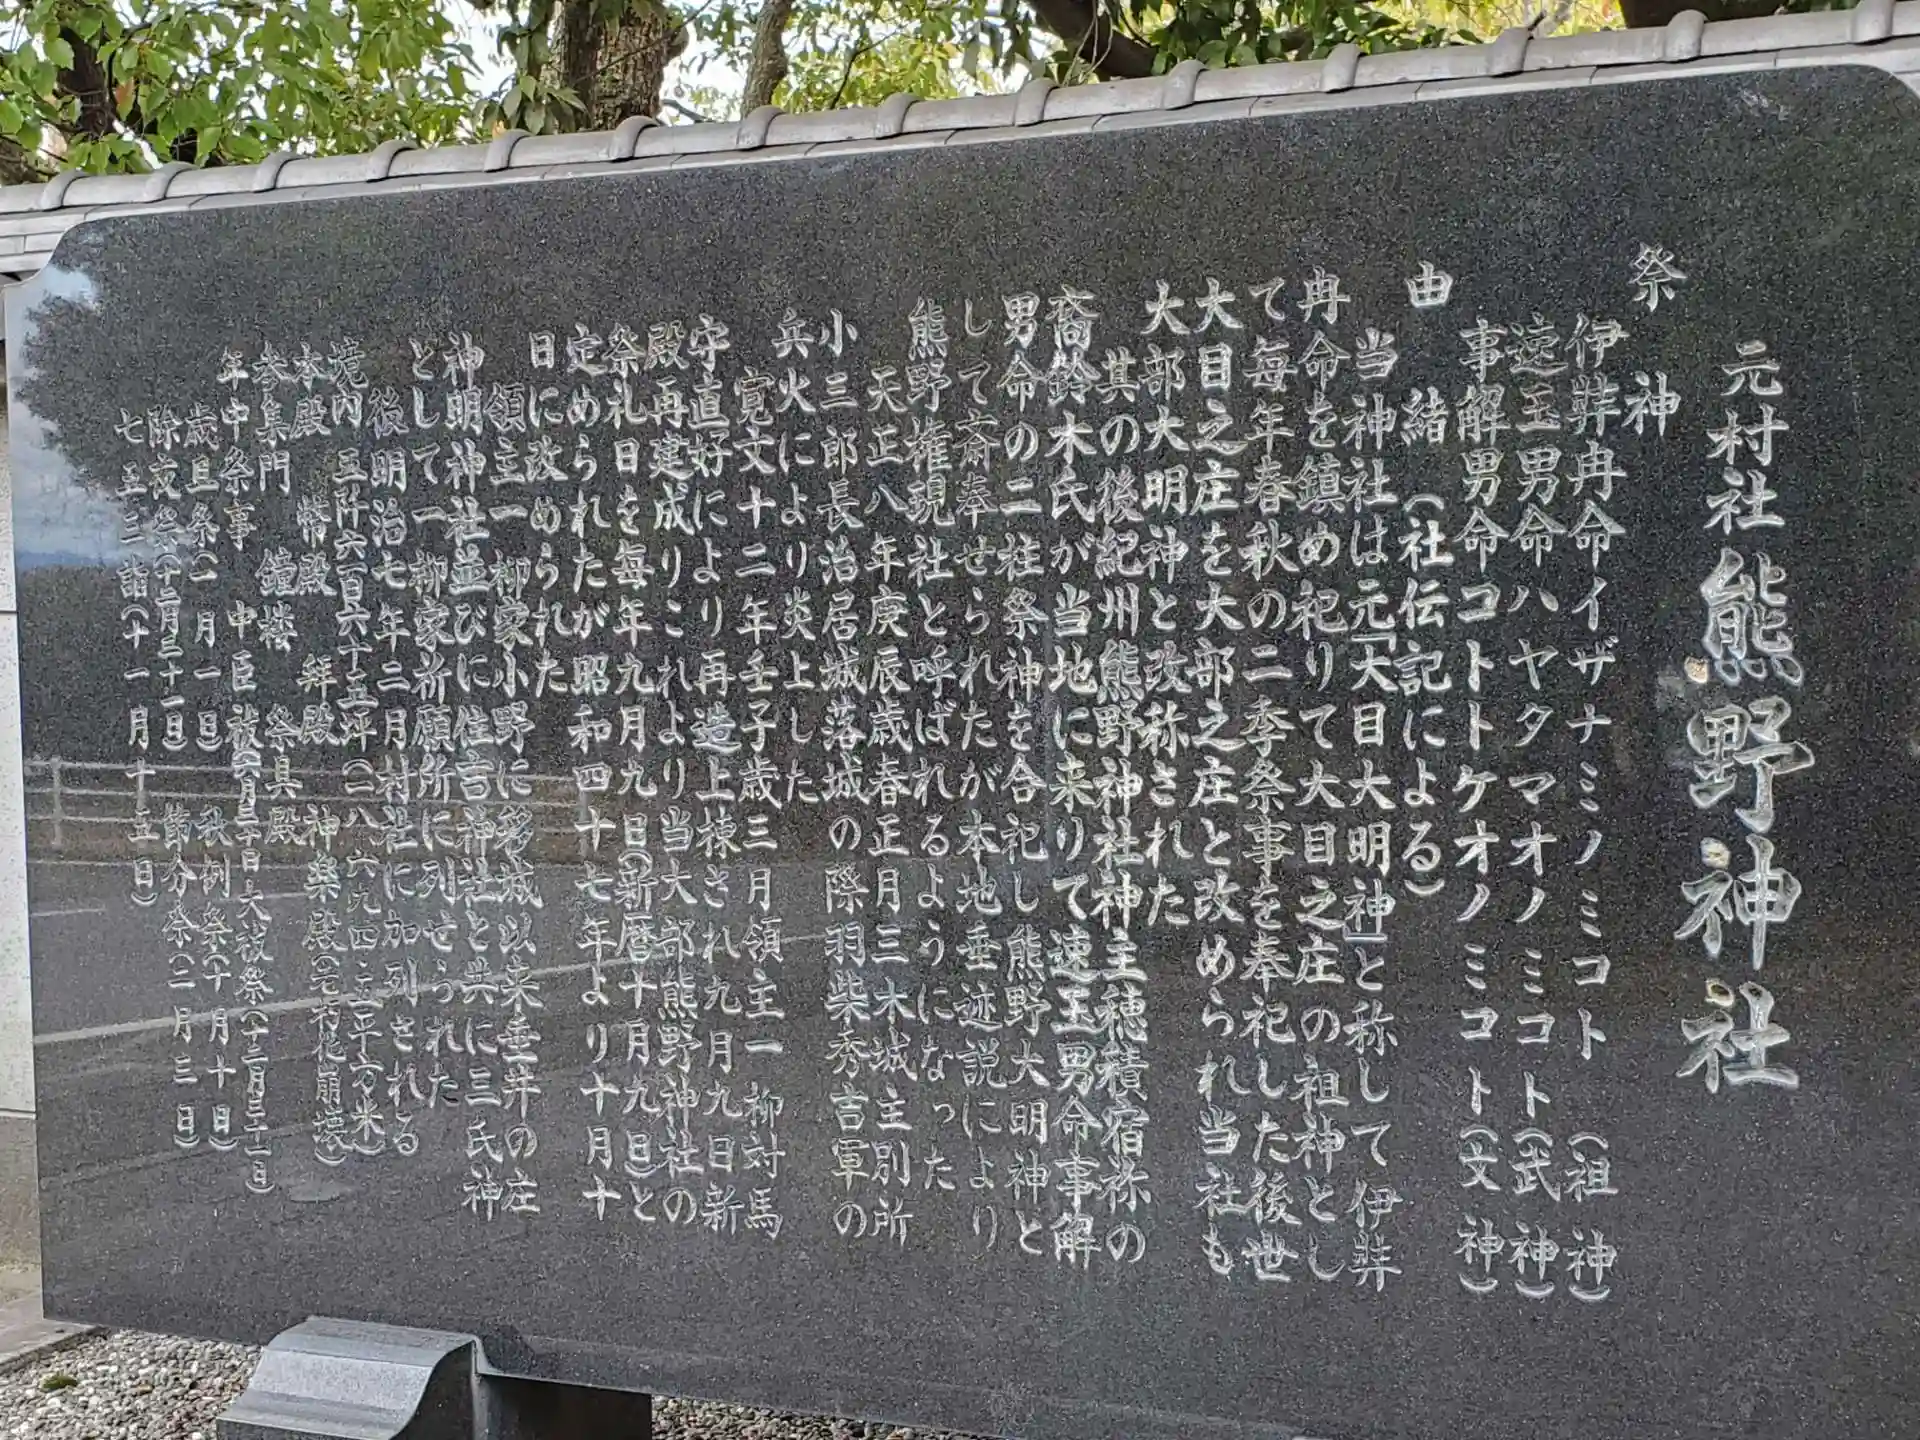 元村社 熊野神社
祭神
伊弉冉命イザナミノミコト(祖神)
速玉男命ハヤタマオノミコト(武神)
事解男命コトトケオノミコト(文神)
由緒(社伝記による)
当神社は元「大目大明神」と称して伊弉
冉命を鎮め祀りて大目之庄の祖神とし
て毎年春秋の二季祭事を奉祀した後世
大目之庄を大部之庄と改められ当社も
大部大明神と改称された
其の後紀州熊野神社神主穂積宿祢の
裔鈴木氏が当地に来りて速玉男命事解
男命の二柱祭神を合祀し熊野大明神と
して斎奉せられたが本地垂迹説により
熊野権現社と呼ばれるようになった
天正八年庚辰歳春正月三木城主別所
小三郎長治居城落城の際羽柴秀吉軍の
兵火により炎上した
寛文十二年壬子歳三月領主一柳対馬
守直好により再造上棟され九月九日新
殿再建成りこれより当大部熊野神社の
祭礼日を毎年九月九日(新暦十月九日)と
定められたが昭和四十七年より十月十
日に改められた
領主一柳家小野に移城以来垂井の庄
神明神社並びに住吉神社と共に三氏神
として一柳家祈願所に列せられた
後明治七年二月村社に加列される
境内 五阡六百六十五坪(一八六九四・五平方米)
本殿 幣殿 拝殿 神楽殿(元禄花崩壊)
参集門 鐘楼 祭具殿
年中祭事 中臣祓(六月三十日)大祓祭(十二月三十一日)
歳旦祭(一月一日) 秋例祭(十月十日)
除夜祭(十二月三十一日) 節分祭(二月三日)
七五三詣(十一月十五日)